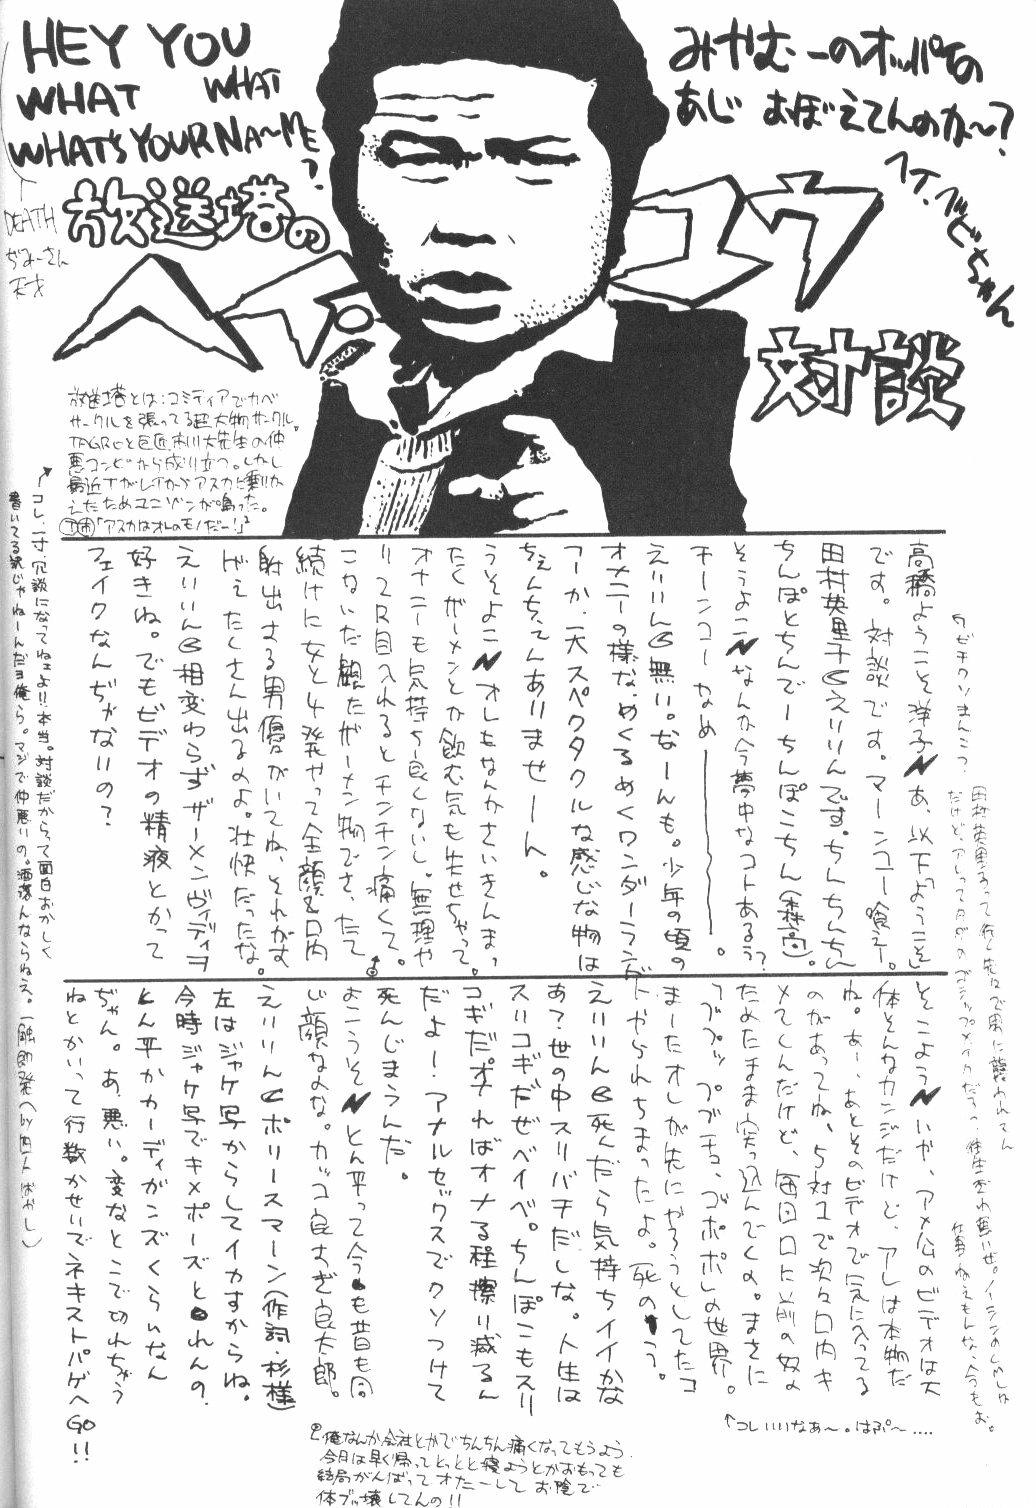 HEY YOU
WHAT WHAT
WHAT'S YOUR NA〜ME?
DEATH
ぢみーさん
天才
みやむーのオッパイの
あじ おぼえてんのか〜?
放送塔の
ヘイ ユウ
対談
放送塔とは:コミティアでカベ
サークルを張ってる超大物サークル。
TAGROと巨匠市川大先生の仲
悪コンビから成り立つ。しかし
「アスカはオレのモノだー!」
コレ、一寸冗談になってねェよ!!本当。対談だからって面白おかしく
書いてる訳じゃねーんだヨ俺ら。マジで仲悪いの。洒落んならねえ。
高橋ようこそ洋子 あ、以下「ようこそ」
です。対談です。マーンコー喰えー。
田村英里子 えりりんです。ちんちんちん
ちんぽとちんでーちんぽこちん(森高)。
そうよこ なんか今夢中なコトあるぅ?
チーンコー なめ―――。
えりりん 無い。なーんも。少年の頃の
オメニーの様な、めくるめくワンダーランド
アーか、一大スペクタクルな感じな物は
ちぇんちぇんありませーん。
うそよこ オレもなんかさいきんまっ
たくザーメンとか飲む気も失せちゃって。
オナニーも気持ち良くないし。無理や
り2R目入れるとチンチン痛くて。
こないだ観たザーメン物でさ、たて
続けに女と4発やって全顔&口内
射出する男優がいてね、それがす
げえたくさん出るのよ。壮快だったな。
えりりん 相変わらずザーメンヴィディヲ
好きね。でもビデオの精液とかって
フェイクなんぢゃないの?
そこよう いや、アメ公のビデオは大
体そんなカンジだけど、アレは本物だ
ね。あー、あとそのビデオで気に入ってる
のがあってね、5対1で次々口内キ
メてくんだけど、毎回口に前の奴の
ためたまま突っ込んでくの。まさに
ブブプッププチュ、ゴポポポしの世界。
まーたオレが先にやろうとしてたコ
トやられちまったよ。死のう。
えりりん 死んだら気持ちイイかな
あ?世の中スリバチだしな。人生は
スリコギだぜベイベ。ちんぽこもスリ
コギだ。オナればオナる程擦り減るん
だよー!アナルセックスでクソつけて
死んじまうんだ。
よこうそ とん平って今も昔も同
じ顔なのな。カッコ良すぎ良太郎。
えりりん ポリースマーン(作詞・杉様)
左はジャケ写からしてイカすからね。
今時ジャケ写でキメポーズとれんの、
とん平かカーディガンズくらいなん
ぢゃん。あ、悪い。変なとこで切れちゃう
ねとかいって行数かせいでネキストパゲへGO!!
↑コレいいなあ〜。はぷ〜....
俺なんか会社とかでちんちん痛くなってもうよう
今日は早く帰ってとっとと寝ようとかおもっても
結局がんばってオナニーして お陰で
体ブッ壊してんの!!